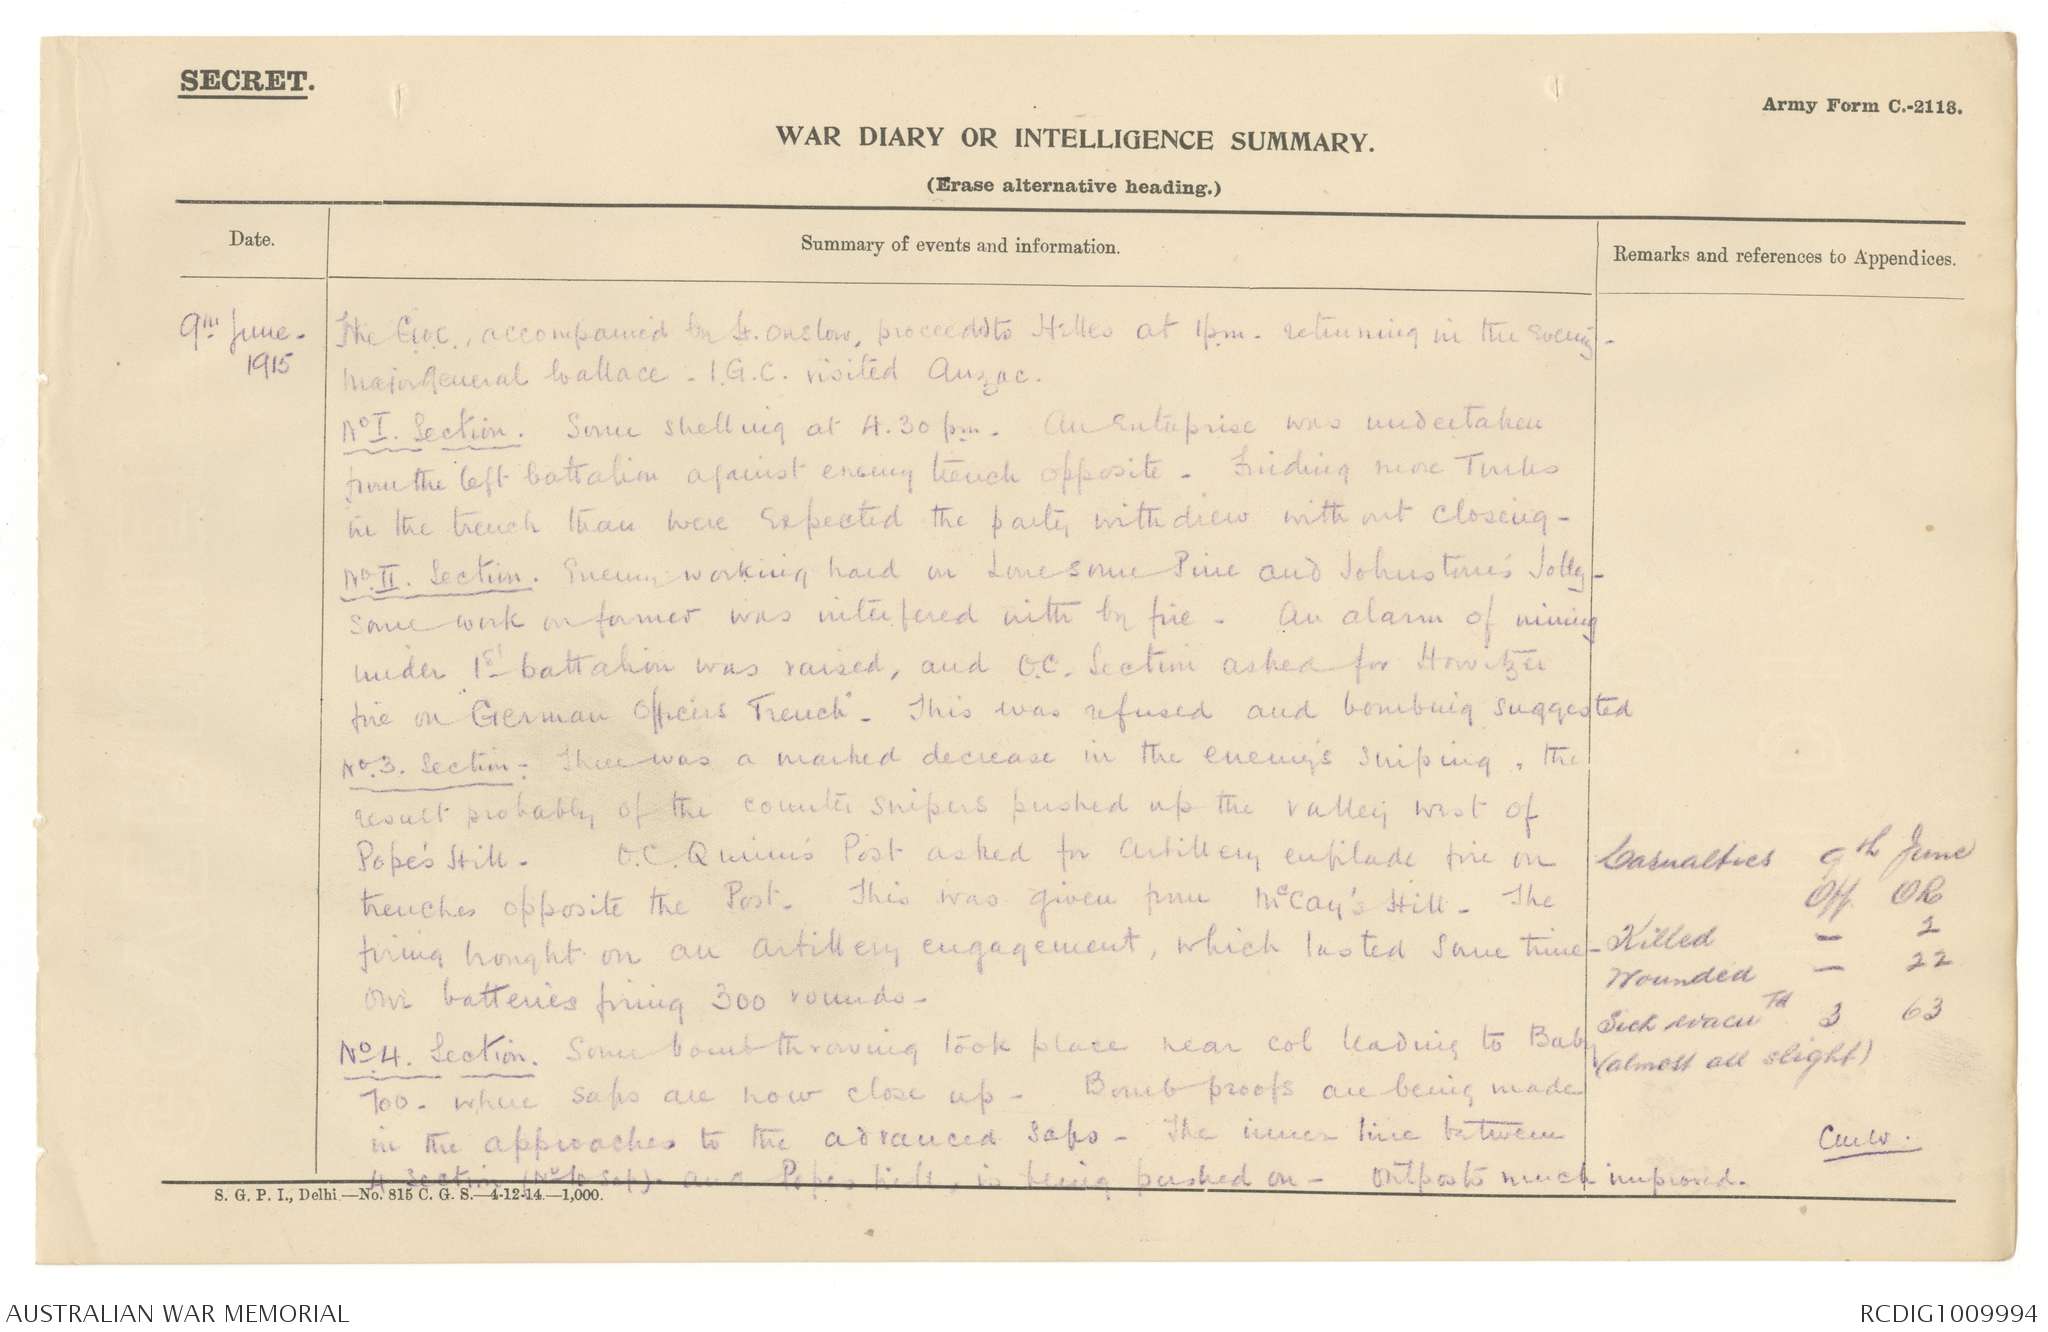 SECRET.
Army Form C.-2118.
WAR DIARY OR INTELLIGENCE SUMMARY.
(Erase alternative heading.)
Date.
Summary of events and information.
Remarks and references to Appendices.
9th June.
1915
The G.O.C., accompanied by Lt. Onslow, proceeded to Helles at 1pm. returning in the evening.
Major General Wallace - I.G.C. visited Anzac.
No I. Section. Some shelling at 4.30 pm. An enterprise was undertaken
from the left battalion against enemy trench opposite - Finding more Turks
in the trench than were expected the party withdrew without closing -
No. II. Section. Enemy working hard on Lonesome Pine and Johnstone's Jolly -
some work on former was interfered with by fire - An alarm of mining
under 1st battalion was raised, and O.C. Section asked for Howitzer
fire on "German Officers Trench" - This was refused and bombing suggested
No. 3. Section - There was a marked decrease in the enemy's sniping, the
result probably of the counter snipers pushed up the valley west of
Pope's Hill - O.C. Quinn's Post asked for Artillery enfilade fire on
trenches opposite the Post - This was given from McCay's Hill - The
firing brought on an artillery engagement, which lasted some time -
our batteries firing 300 rounds -
No 4. Section. Some bomb throwing took place near col leading to Baby
700 - where saps are now close up - Bomb proofs are being made
in the approaches to the advanced saps - The inner line between
4 Section (No 10 Sap) - and Popes hill, is being pushed on - Outposts much improved.
Casualties 9th June
Off OR
Killed - 2
Wounded - 22
Sick evacuTd 3 63
(almost all slight)
S. G. P. I., Delhi.—No. 815 C. G. S.—4-12-14.—1,000.
AUSTRALIAN WAR MEMORIAL
RCDIG1009994